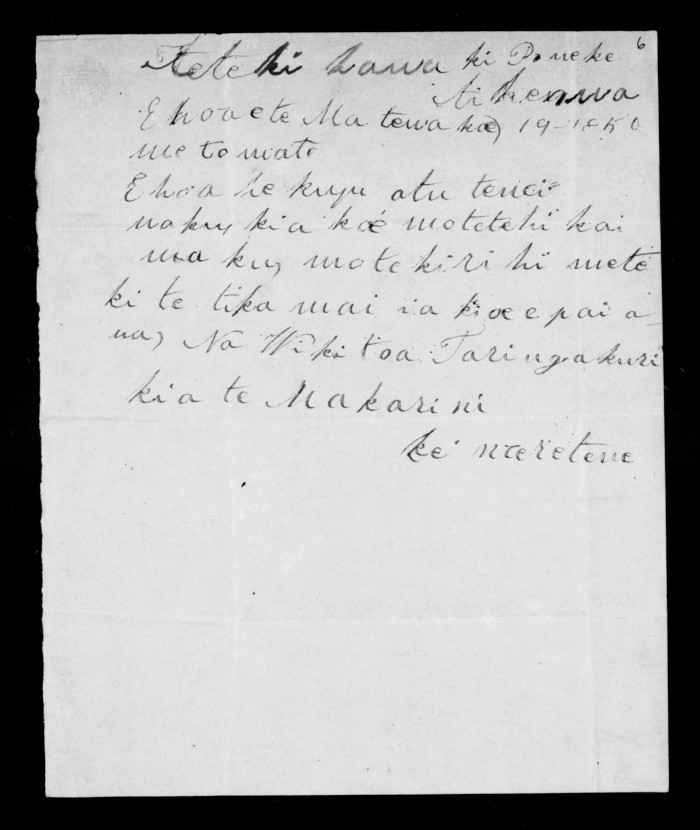 6
Tete ki hawa ki Poneke
Akenwa
E hoa e te Ma tewa kae, 19-1850
me to mate
E hoa he kupu atu tenei
naku, kia koe mo tetehi kai
ma ku, mo te kiri hi mete
ki te tika mai ia koe e pai a-
na, Na Wikitoa Taringakuri
kia te Makarini
kei neretene